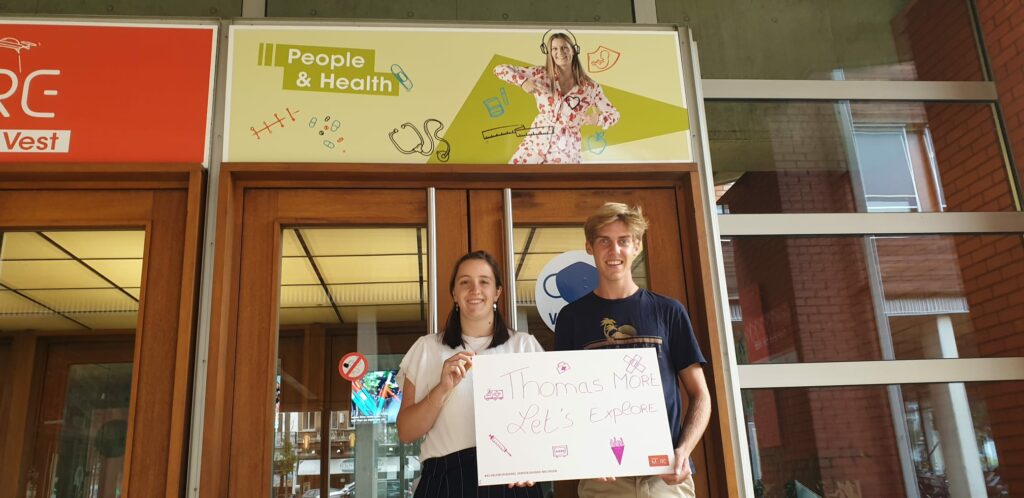 RE
Vest
People
& Health
Thomas MORE
Let's Explore